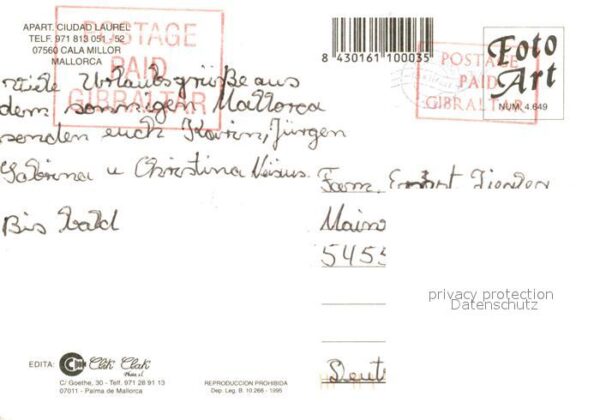 APART. CIUDAD LAUREL
TELF. 971 813 051 - 52
07560 CALA MILLOR
MALLORCA
POSTAGE
PAID
GIBRALTAR
8 430161 100035
POSTAGE
PAID
GIBRALTAR
Foto
Art
NUM. 4.649
viele Urlaubsgrüße aus
dem sonnigen Mallorca
senden euch Karin, Jürgen
Sabrina u Christina
Bis bald
Fam.
Main
5455
Deut
privacy protection
Datenschutz
EDITA: Clik Clak
Photo s.l.
C/ Goethe, 30 - Telf. 971 26 91 13
07011 - Palma de Mallorca
REPRODUCCION PROHIBIDA
Dep. Leg. B. 10.266 - 1995